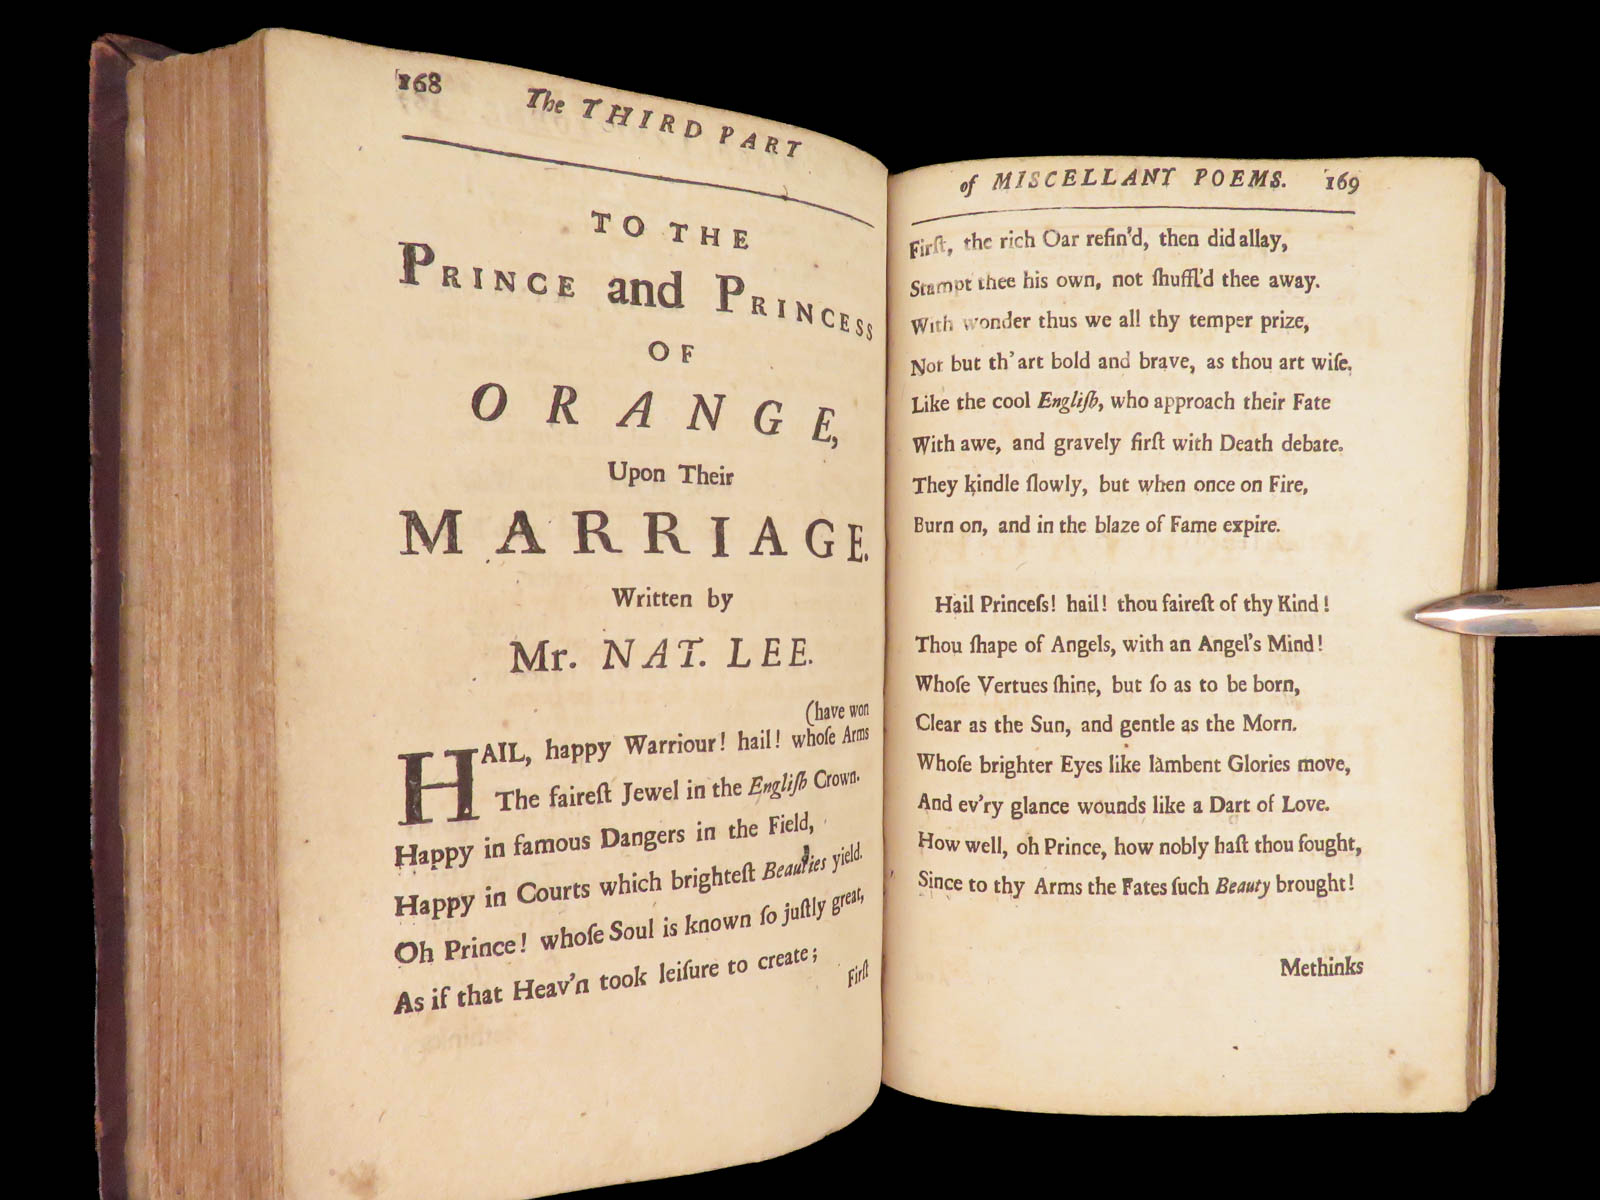 168 The THIRD PART
TO THE
PRINCE and PRINCESS
OF
ORANGE,
Upon Their
MARRIAGE.
Written by
Mr. NAT. LEE.
(have won
HAIL, happy Warriour! hail! whoſe Arms
The faireſt Jewel in the Engliſh Crown.
Happy in famous Dangers in the Field,
Happy in Courts which brighteſt Beauties yield.
Oh Prince! whoſe Soul is known ſo juſtly great,
As if that Heav'n took leiſure to create;
Firſt
of MISCELLANY POEMS. 169
Firſt, the rich Oar refin'd, then did allay,
Stampt thee his own, not ſhuffl'd thee away.
With wonder thus we all thy temper prize,
Not but th' art bold and brave, as thou art wiſe.
Like the cool Engliſh, who approach their Fate
With awe, and gravely firſt with Death debate.
They kindle ſlowly, but when once on Fire,
Burn on, and in the blaze of Fame expire.
Hail Princeſs! hail! thou faireſt of thy Kind!
Thou ſhape of Angels, with an Angel's Mind!
Whoſe Vertues ſhine, but ſo as to be born,
Clear as the Sun, and gentle as the Morn.
Whoſe brighter Eyes like lambent Glories move,
And ev'ry glance wounds like a Dart of Love.
How well, oh Prince, how nobly haſt thou fought,
Since to thy Arms the Fates ſuch Beauty brought!
Methinks